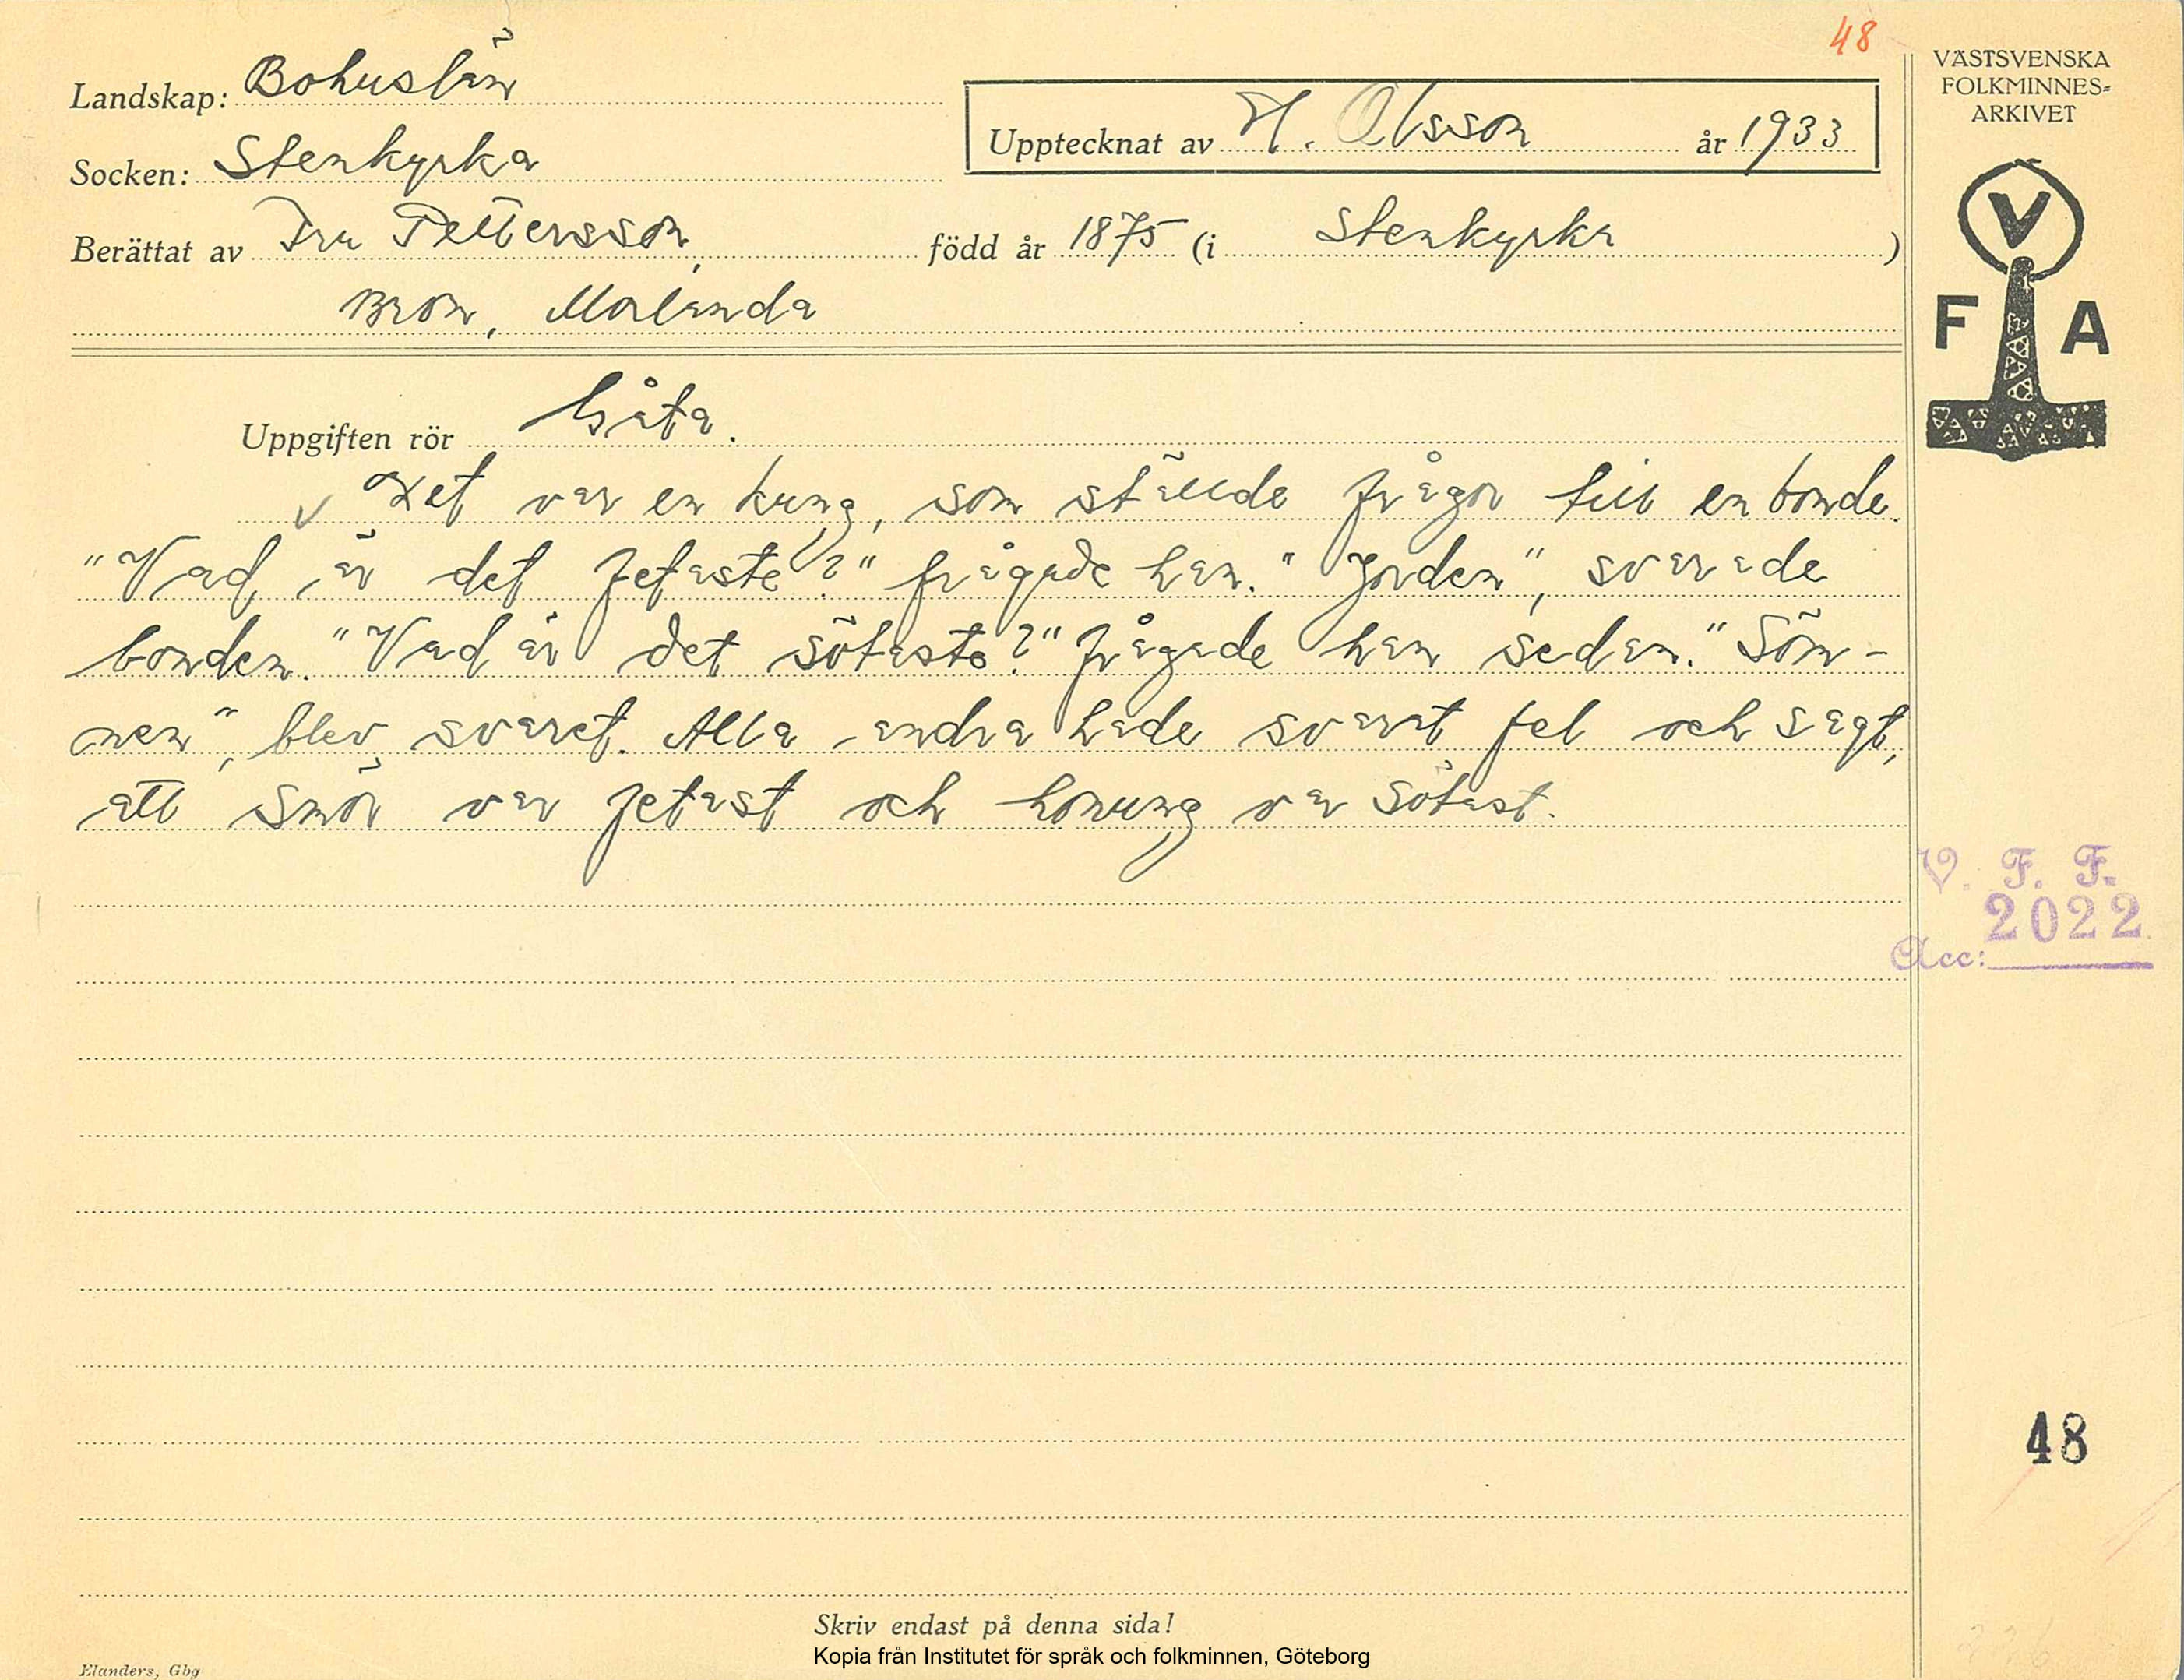 48
VÄSTSVENSKA
FOLKMINNES=
ARKIVET
Landskap: Bohuslän
Upptecknat av H. Olsson år 1933
Socken: Stenkyrka
Berättat av Fru Pettersson, född år 1875 (i Stenkyrka)
Bron, Morlanda
V
F A
Uppgiften rör Gåta.
Det var en kung, som ställde frågor till en bonde.
"Vad är det fetaste?" frågade han. "Jorden", svarade
bonden. "Vad är det sötaste?" frågade han sedan. "Söm-
nen", blev svaret. Alla andra hade svarat fel och sagt,
att smör var fetast och honung var sötast.
V. F. F.
2022
Acc:
48
Skriv endast på denna sida!
Kopia från Institutet för språk och folkminnen, Göteborg
Elanders, Gbg